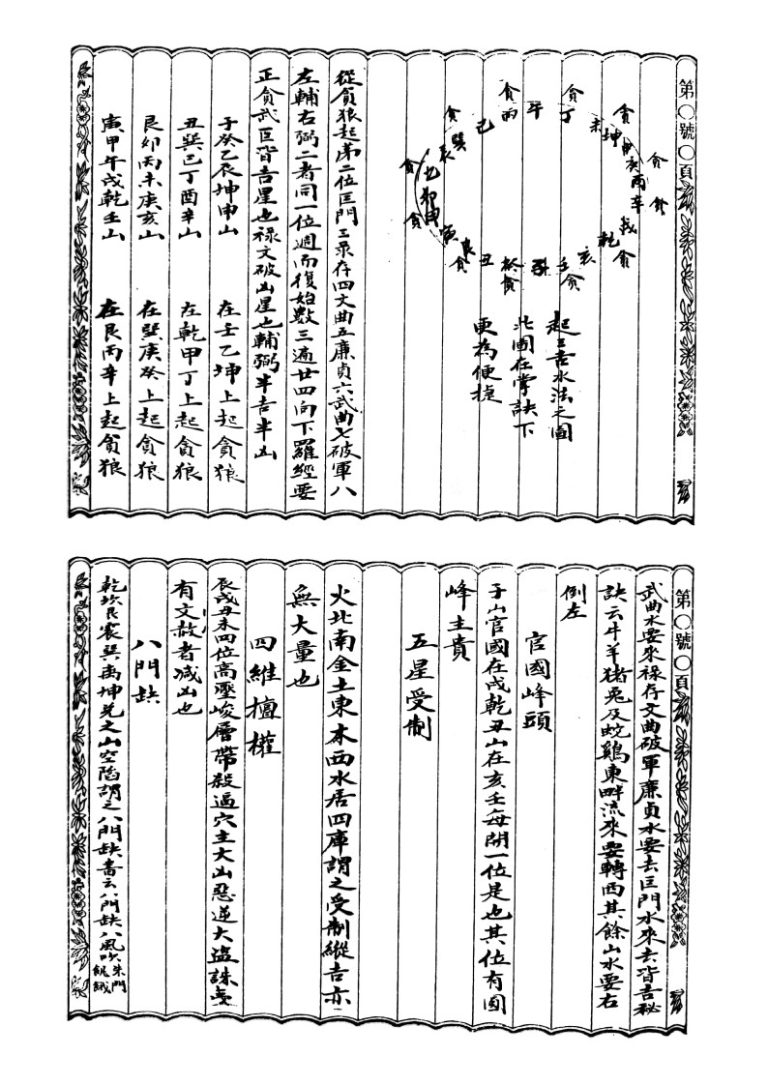 第○號○頁
貪 貪 丁 午 丙 貪 巳 巽 貪 辰 乙 卯 甲 貪 貪 寅 艮 貪 丑 癸 子 貪 壬 貪 亥 乾 戌 貪 辛 酉 庚 申 坤 未 貪 貪
起三吉水法之图
此图在掌訣下
更為便捷
從貪狼起弟二位巨門三录存四文曲五廉貞六武曲七破軍八
左輔右弼二者同一位週而復始数三遍廿四向下羅經要
正貪武巨皆吉星也禄文破凶星也輔弼半吉半凶
子癸乙辰坤申山 在壬乙坤上起貪狼
丑巽巳丁酉辛山 在乾甲丁上起貪狼
艮卯丙未庚亥山 在巽庚癸上起貪狼
寅甲午戌乾壬山 在艮丙辛上起貪狼
第○號○頁
武曲水要來禄存文曲破軍廉貞水要去巨門水來去皆吉秘
訣云牛羊猪兔及蛇鷄東畔流來要轉西其餘山水要右
倒左
官國峰頭
子山官國在戌乾丑山在亥壬每隔一位是也其位有圆
峰主貴
五星受制
火北南金土東木西水居四庫謂之受制縱吉亦
無大量也
四維擅權
辰戌丑未四位高壓峻層帶殺逼穴主大凶惡逆大盗誅
有文故者减凶也
八門缺
乾坎艮震巽离坤兑之山空陷謂之八門缺書云八門缺八風吹朱門餓